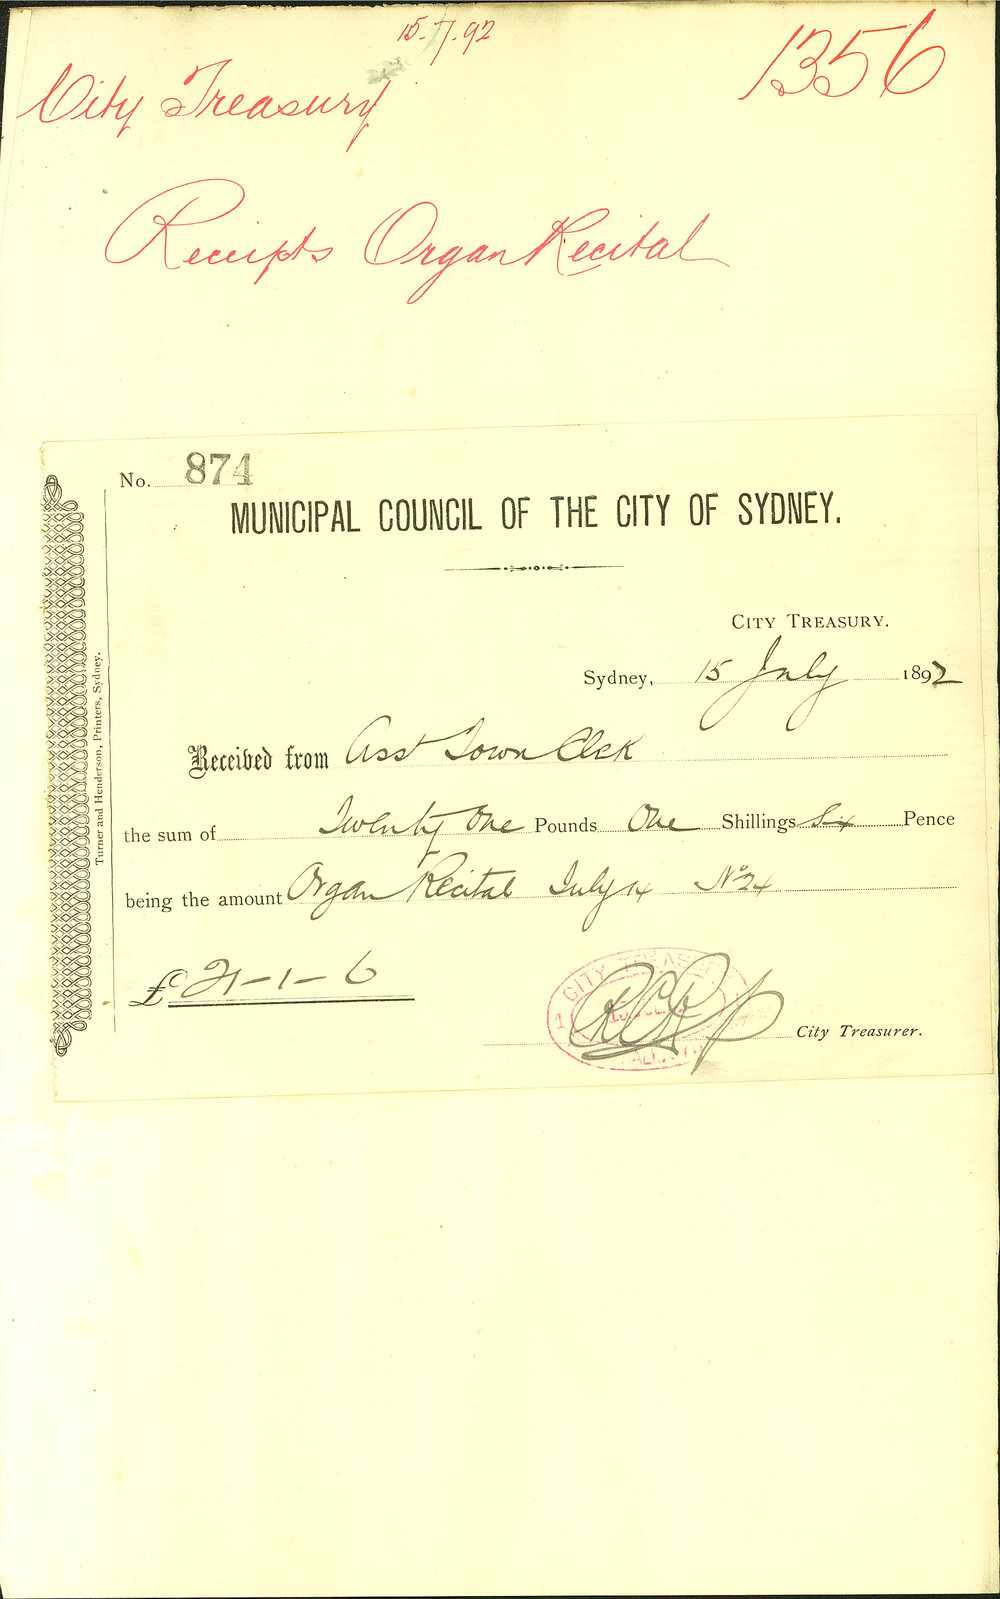 15.7.92
1356
City Treasury
Receipts Organ Recital
No. 874
MUNICIPAL COUNCIL OF THE CITY OF SYDNEY.
CITY TREASURY.
Sydney, 15 July 1892
Received from Asst Town Clek
the sum of Twenty One Pounds One Shillings Six Pence
being the amount Organ Recital July 14 No 24
£ 21-1-6
CITY TREASU
City Treasurer.
Turner and Henderson, Printers, Sydney.